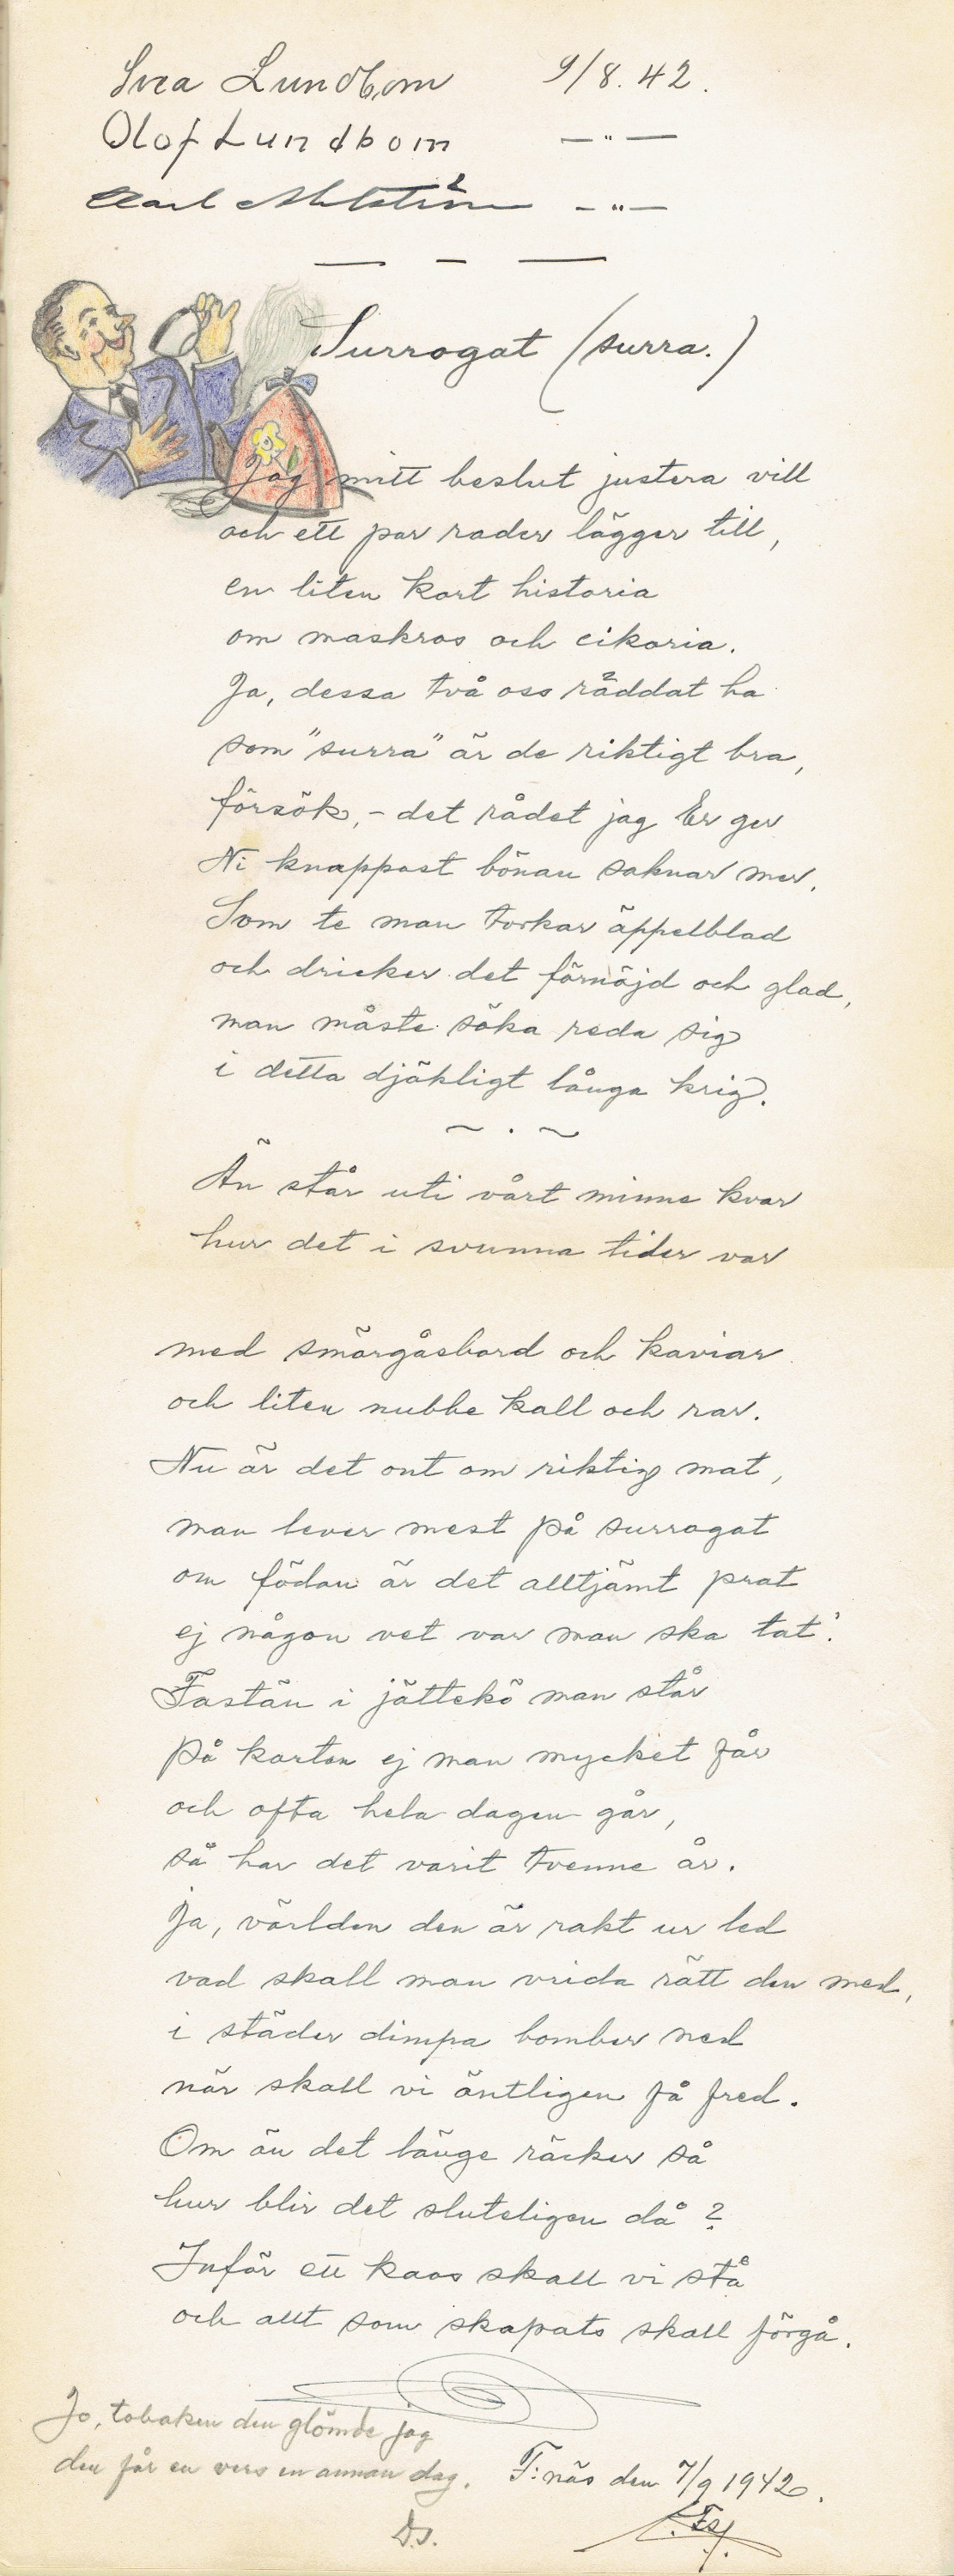 Svea Lundbom 9/8. 42.
Olof Lundbom — " —
Carl — " —
Surrogat (surra.)
Jag mitt beslut justera vill
och ett par rader lägger till,
en liten kort historia
om maskros och cikoria.
Ja, dessa två oss räddat ha
som "surra" är de riktigt bra,
försök, - det rådet jag Er ger
Ni knappast bönan saknar mer.
Som te man torkar äppelblad
och dricker det förnöjd och glad,
man måste söka reda sig
i detta djäkligt långa krig.
~ . ~
Än står uti vårt minne kvar
hur det i svunna tider var
med smörgåsbord och kaviar
och liten nubbe kall och rar.
Nu är det ont om riktig mat,
man lever mest på surrogat
om födan är det alltjämt prat
ej någon vet var man ska tat'.
Fastän i jättekö man står
på korten ej man mycket får
och ofta hela dagen går,
så har det varit tvenne år.
Ja, världen den är rakt ur led
vad skall man vrida rätt den med,
i städer dimpa bomber ned
när skall vi äntligen få fred.
Om än det länge räcker så
hur blir det sluteligen då ?
Inför ett kaos skall vi stå
och allt som skapats skall förgå.
Jo, tobaken den glömde jag
den får en vers en annan dag.
F:näs den 7/9 1942.
D.s.